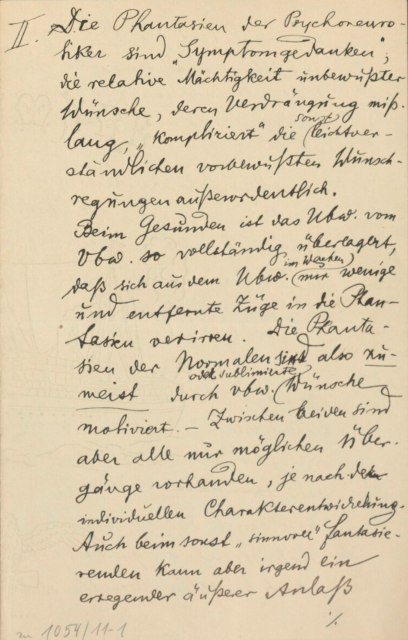 II. Die Phantasien der Psychoneuro-
tiker sind „Symptomgedanken“,
die relative Mächtigkeit unbewußter
Wünsche, deren Verdrängung miß-
lang, „kompliziert“ die (sonst) leichtver-
ständlichen vorbewußten Wunsch-
regungen außerordentlich.
Beim Gesunden ist das Ubw. vom
Vbw. so vollständig überlagert,
daß sich aus dem Ubw. (im Wachen) nur wenige
und entfernte Züge in die Phan-
tasien verirren. Die Phanta-
sien der Normalen sind also zu-
meist durch vbw. (oder sublimierte) Wünsche
motiviert. – Zwischen beiden sind
aber alle nur möglichen Über-
gänge vorhanden, je nach der
individuellen Charakterentwickelung.
Auch beim sonst „sinnvoll“ fantasie-
renden kann aber irgend ein
erregender äußerer Anlaß
./.
1054/11-1